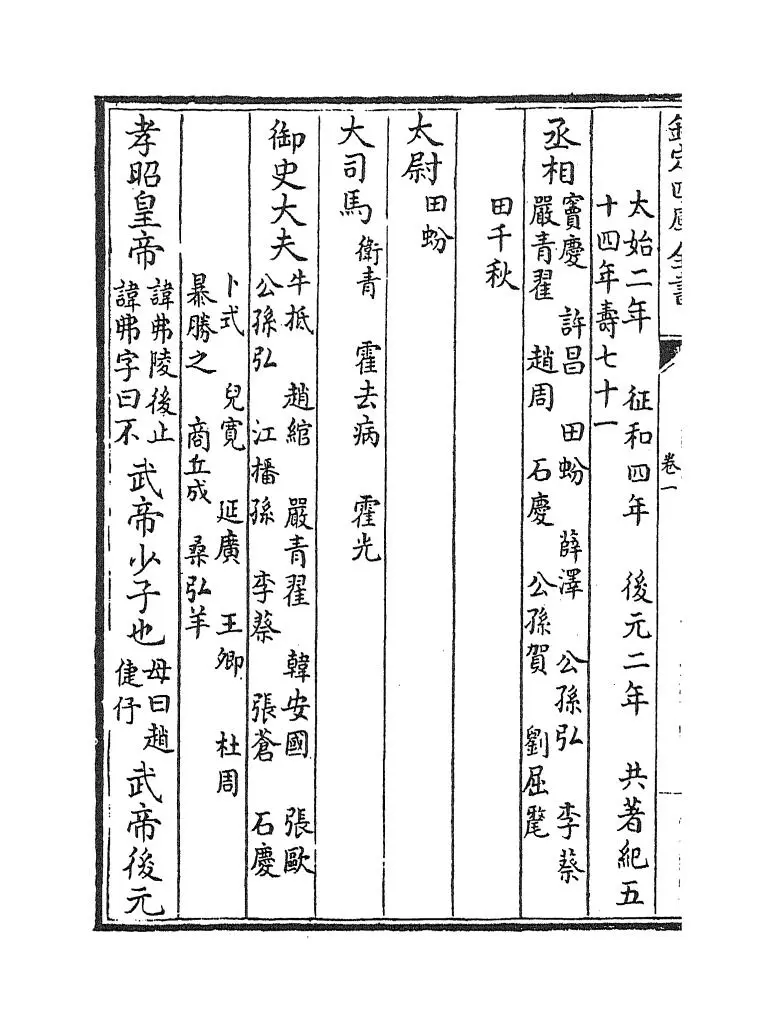 欽定四庫全書
卷一
太始二年 征和四年 後元二年 共著紀五
十四年壽七十一
丞相 竇慶 許昌 田蚡 薛澤 公孫弘 李蔡
嚴青翟 趙周 石慶 公孫賀 劉屈氂
田千秋
太尉 田蚡
大司馬 衛青 霍去病 霍光
御史大夫 牛抵 趙綰 嚴青翟 韓安國 張歐
公孫弘 江播孫 李蔡 張蒼 石慶
卜式 兒寬 延廣 王卿 杜周
暴勝之 商丘成 桑弘羊
孝昭皇帝 諱弗陵後止
諱弗字曰不 武帝少子也 母曰趙
倢伃 武帝後元